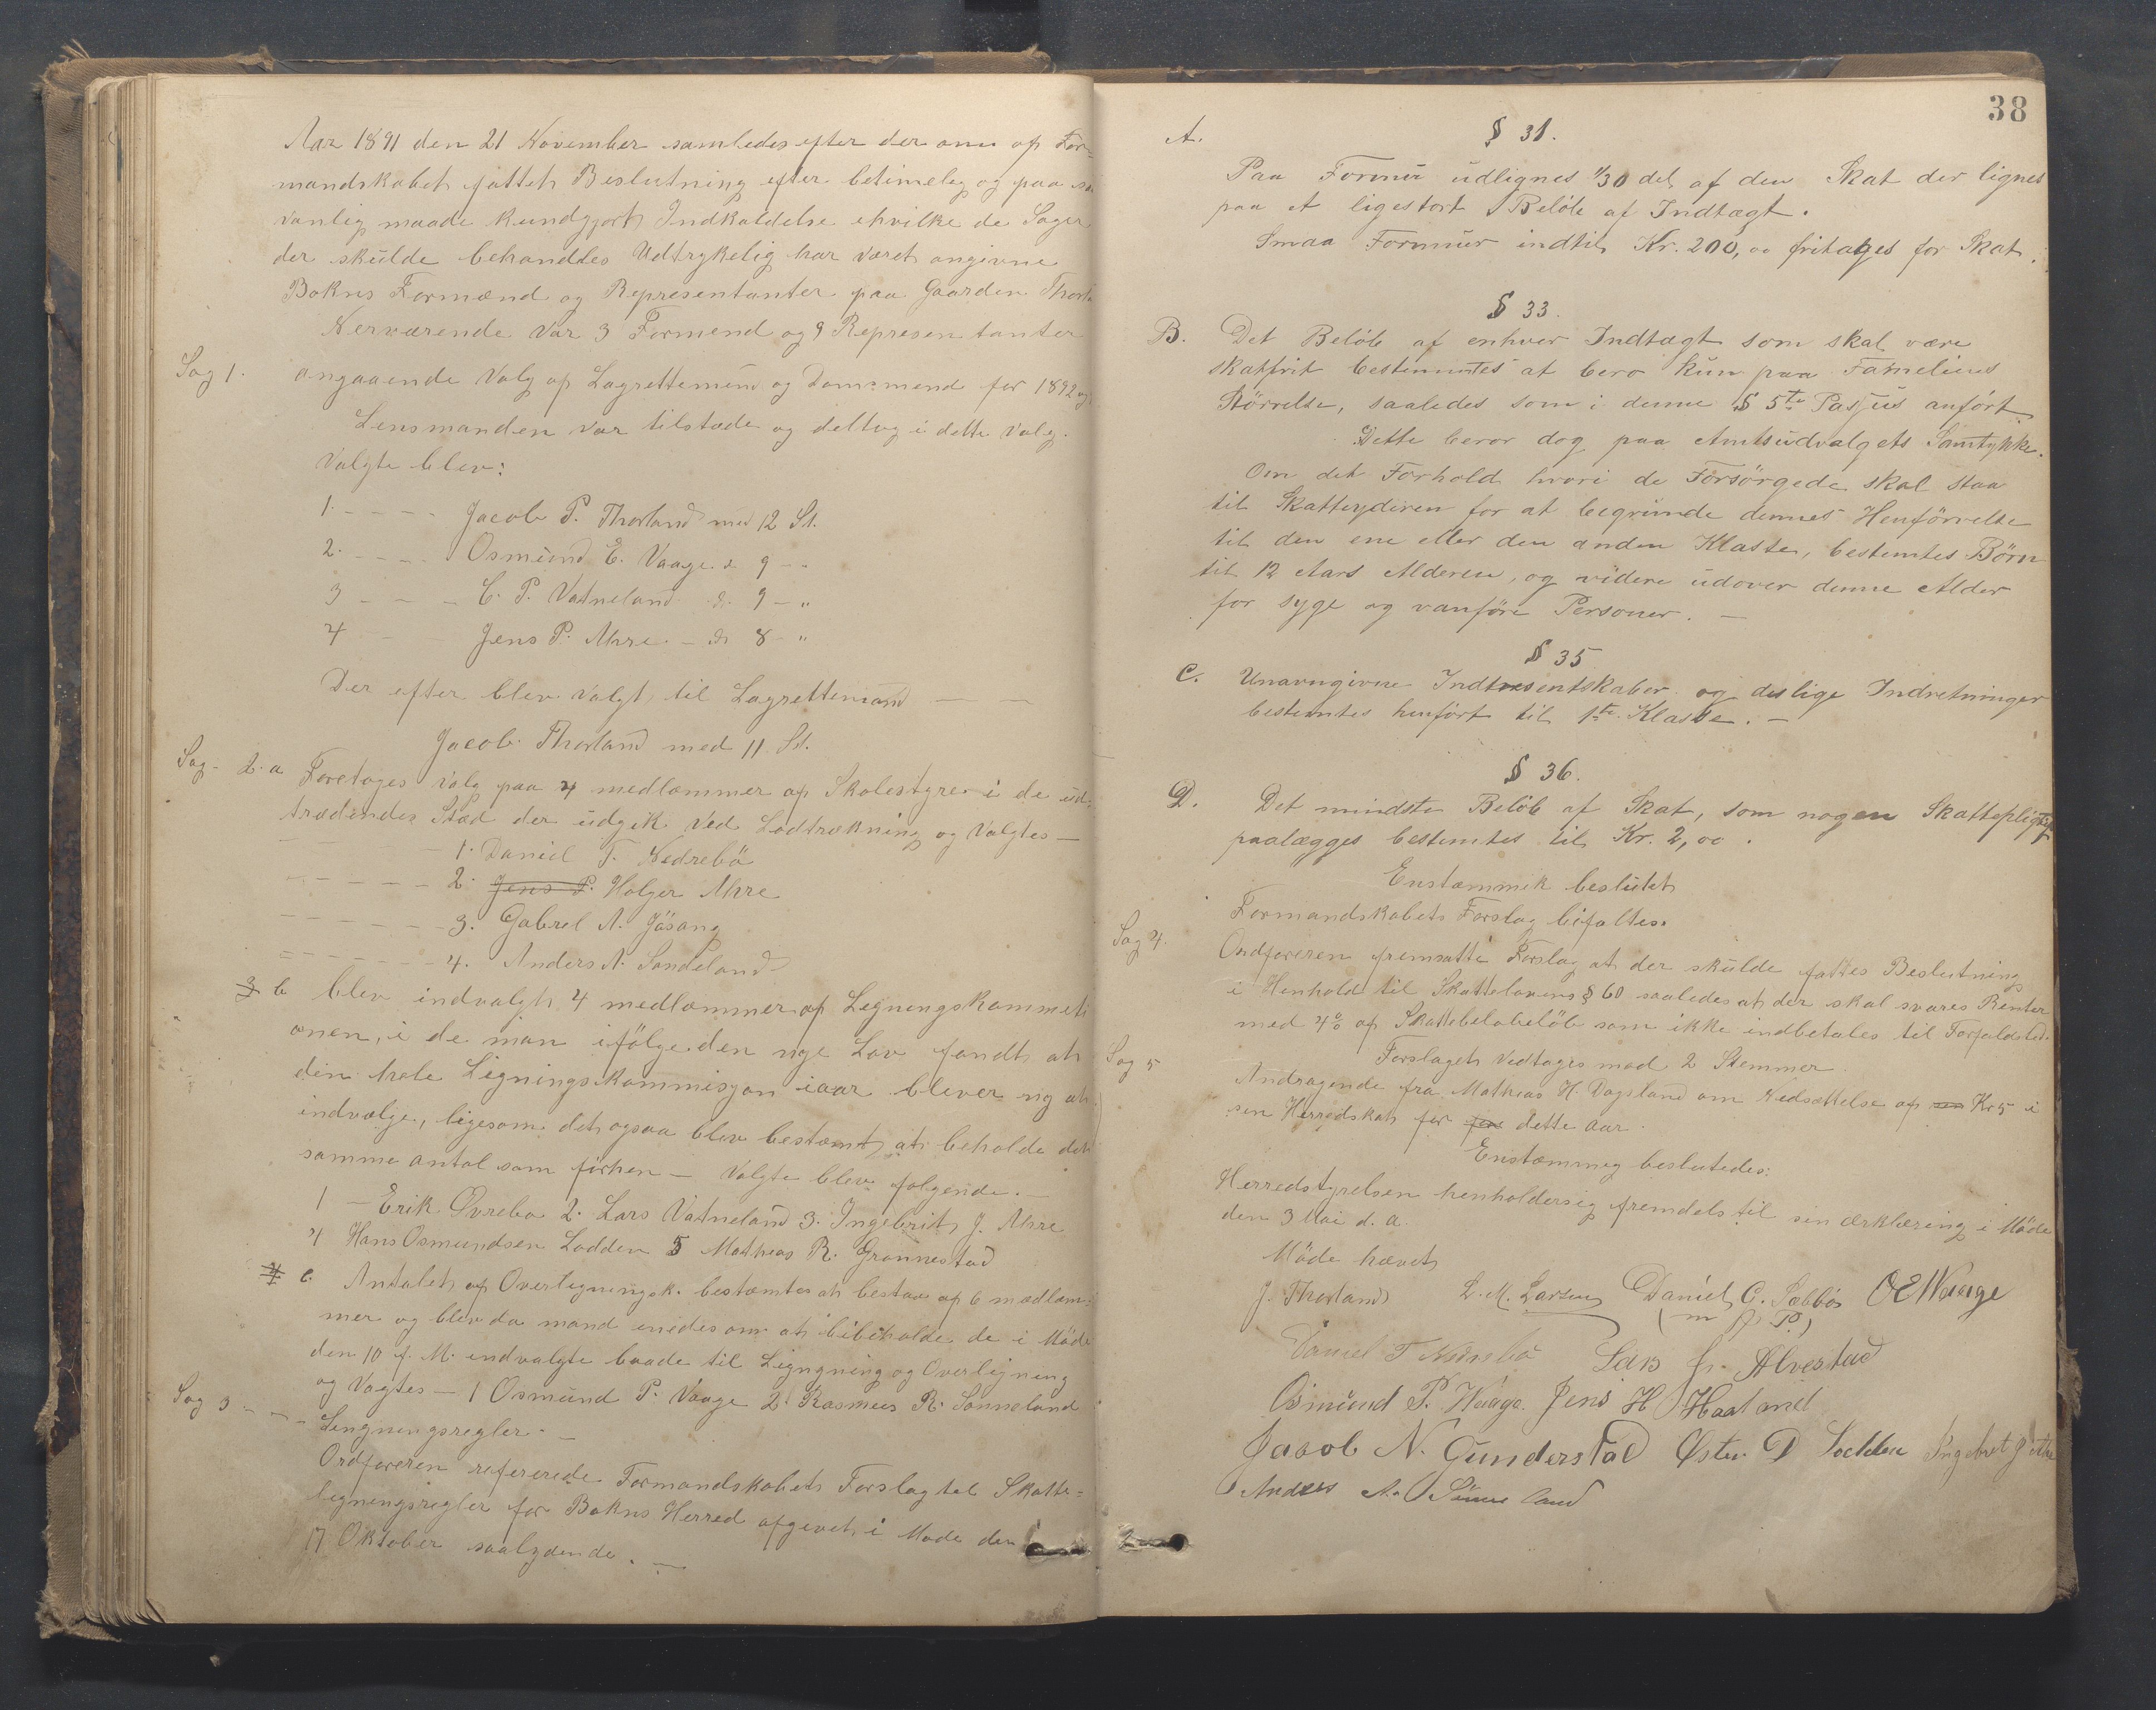 Aar 1891 den 21 November samledes efter der om af For-
mandskabet fattet Beslutning efter betimelig og paa sæ
vanlig maade kundgjort Indkaldelse i hvilke de Sager
der skulde behandles Udtrykelig har været angivne
Bokns Formænd og Representanter paa Gaarden Thorl.
Nerværende var 3 Formend og 9 Representanter
Sag 1. angaaende Valg af Lagrettemænd og Domsmend for 1892 og
Lensmanden var tilstæde og deltog i dette Valg.
Valgte blev:
1. - - - - Jacob P. Thorland med 12 St.
2. - - - - Osmund E. Vaage d 9 - -
3 - - - - C. P. Vatneland d. 9 - "
4 - - Jens P. Ahre - d 8 - "
Der efter blev valgt til Lagrettemand — —
Jacob Thorland med 11 St.
Sag - 2. a Foretages Valg paa 4 medlammer af Skolestyre i de ud-
trædendes Stæd der udgik Ved Lodtrækning og Valgtes —
— — — 1. Daniel T. Nedrebö
- - - - - 2. Jens P. Holger Ahre
- - - - - - 3. Gabrel A. Jösang
- - - - - - 4. Anders A. Sandeland
3 b blev indvalgt 4 medlammer af Legningskommeti
onen, i de man ifölge den nye Lov fandt at
din hele Ligningskommisjon iaar blever ny at
indvælge, ligesom det ogsaa blev bestæmt at beholde det
samme antal som förhen — Valgte blev følgende. —
1 — Erik Øvrebø 2. Lars Vatneland 3. Ingebrit J. Ahre
4 Hans Osmundsen Lodden 5 Mathias R. Grønnestad
4 c. Antalet af Overlegningsk. bestæmtes at bestaa af 6 mædlam-
mer og blev da mand enedes om at bibeholde de i Möde
den 10 f. M. indvalgte baade til Ligngning og Overlejning
og Vagtes — 1 Osmund P. Vaage 2. Rasmus R. Sønneland
Sag 3 - - - Lingningsregler. —
Ordføreren refererede Formandskabets Forslag tel Skatte-
legningsregler for Bokns Herred afgevet i Møde den
17 Oktober saalydende. —
38
A. § 31.
Paa Formue udlignes 1/30 del af den Skat der lignes
paa et ligestort Beløb af Indtægt.
Smaa Formuer indtil Kr. 200,00 fritages for Skat.
§ 33.
B. Det Beløb af enhver Indtægt som skal være
skatfrit bestemmes at bero kun paa Familiens
Størrelse, saaledes som i denne § 5te Pasjus anført.
Dette beror dog paa Amtsudvalgets Samtykke.
Om det Forhold hvori de Forsørgede skal staa
til Skatteyderen for at begrunde dennes Henførrelse
til den ene eller den anden Klasse, bestemtes Børn
til 12 Aars Alderen, og videre udover denne Alder
for syge og vanføre Personer. —
§ 35
C. Unavngivne Indtresentskaber og deslige Indretninger
bestemtes henført til 1ste Klasse. —
§ 36.
D. Det mindste Beløb af Skat, som nogen Skattepligtig
paalægges bestemtes til Kr. 2,00.
Enstæmmek beslutet
Formandskabets Forslag bifaltes.
Sag 4. Ordføreren fremsatte Forslag at der skulde fattes Beslutning
i Henhold til Skattelovens § 60 saaledes at der skal svares Renter
med 4% af Skattebelobelöb som ikke indbetales til Forfaldstid.
Forslaget Vedtages mod 2 Stemmer.
Sag 5 Andragende fra Mathias H. Vagsland om Nedsættelse af sen Kr 5 i
sen Herredskat for fra dette aar.
Enstæmmeg beslutedes:
Herredstyrelsen henholdersig fremdels til sin ærklæring i Möde
den 3 Mai d. a.
Möde hævet
J. Thorland L. M. Larsen Daniel C. Sæbbö OE Waage
(m f. P)
Daniel T Nedrebö Lars Alvestad
Osmund P. Waage. Jens H Haaland
Jacob N. Gunderstad Østen D Lodden Ingebret J Ahre
Anders A. Sönneland